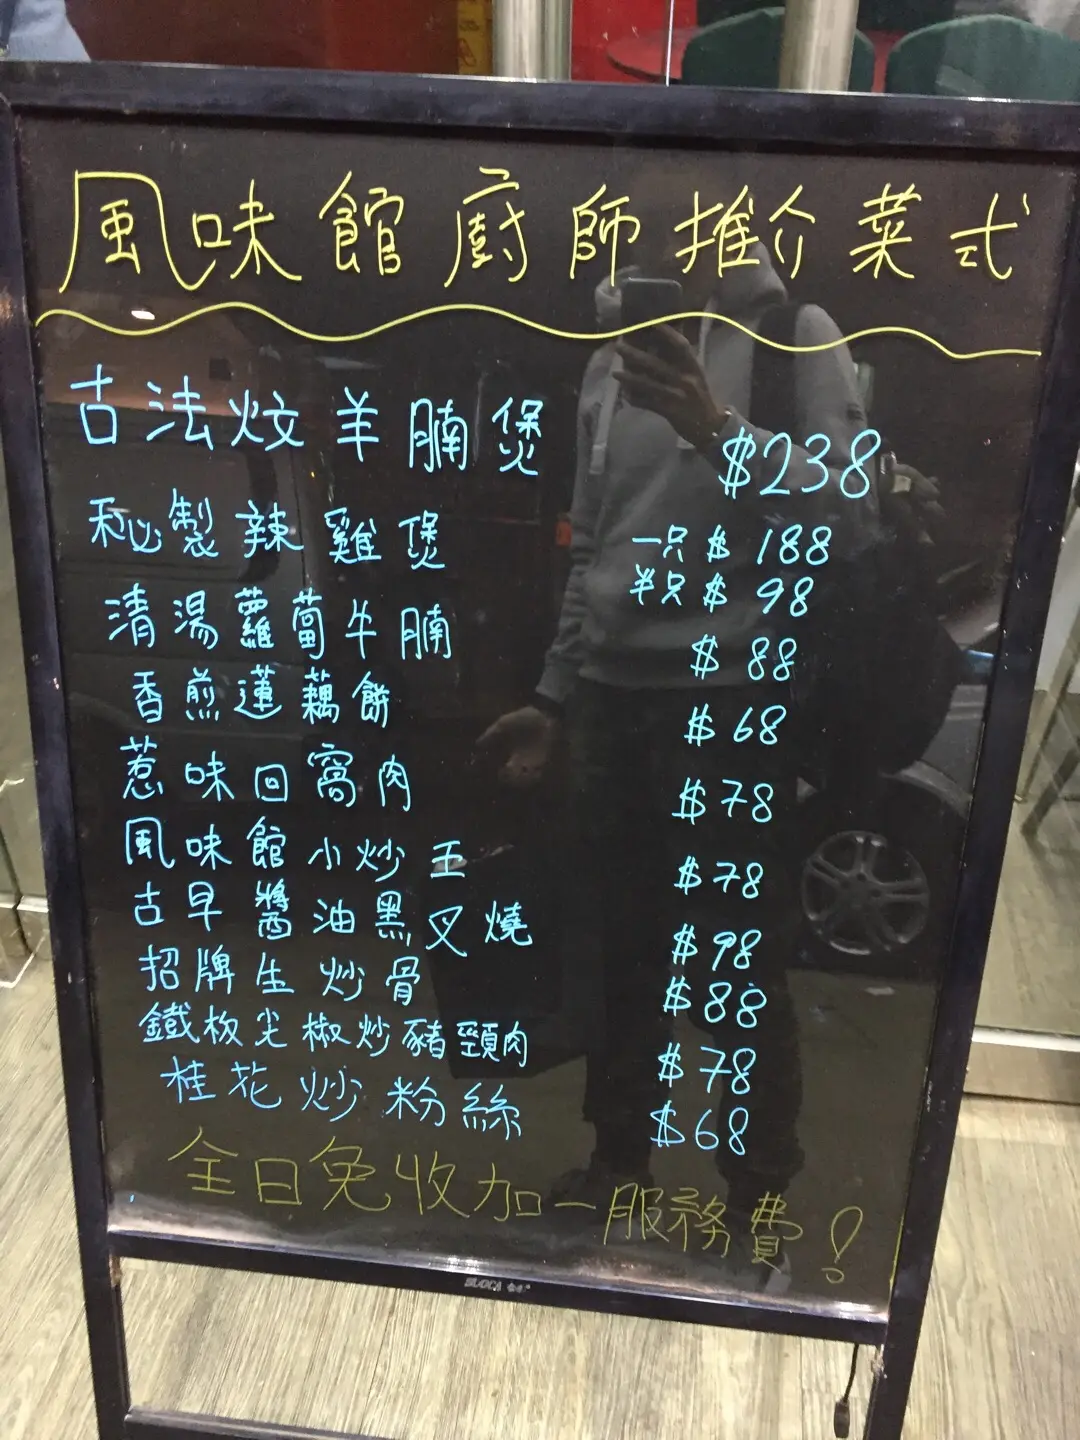 風味館廚師推介菜式
古法炆羊腩煲 $238
秘製辣雞煲 一只 $188
半只 $98
清湯蘿蔔牛腩 $88
香煎蓮藕餅 $68
惹味回窩肉 $78
風味館小炒王 $78
古早醬油黑叉燒 $98
招牌生炒骨 $88
鐵板尖椒炒豬頸肉 $78
桂花炒粉絲 $68
全日免收加一服務費!